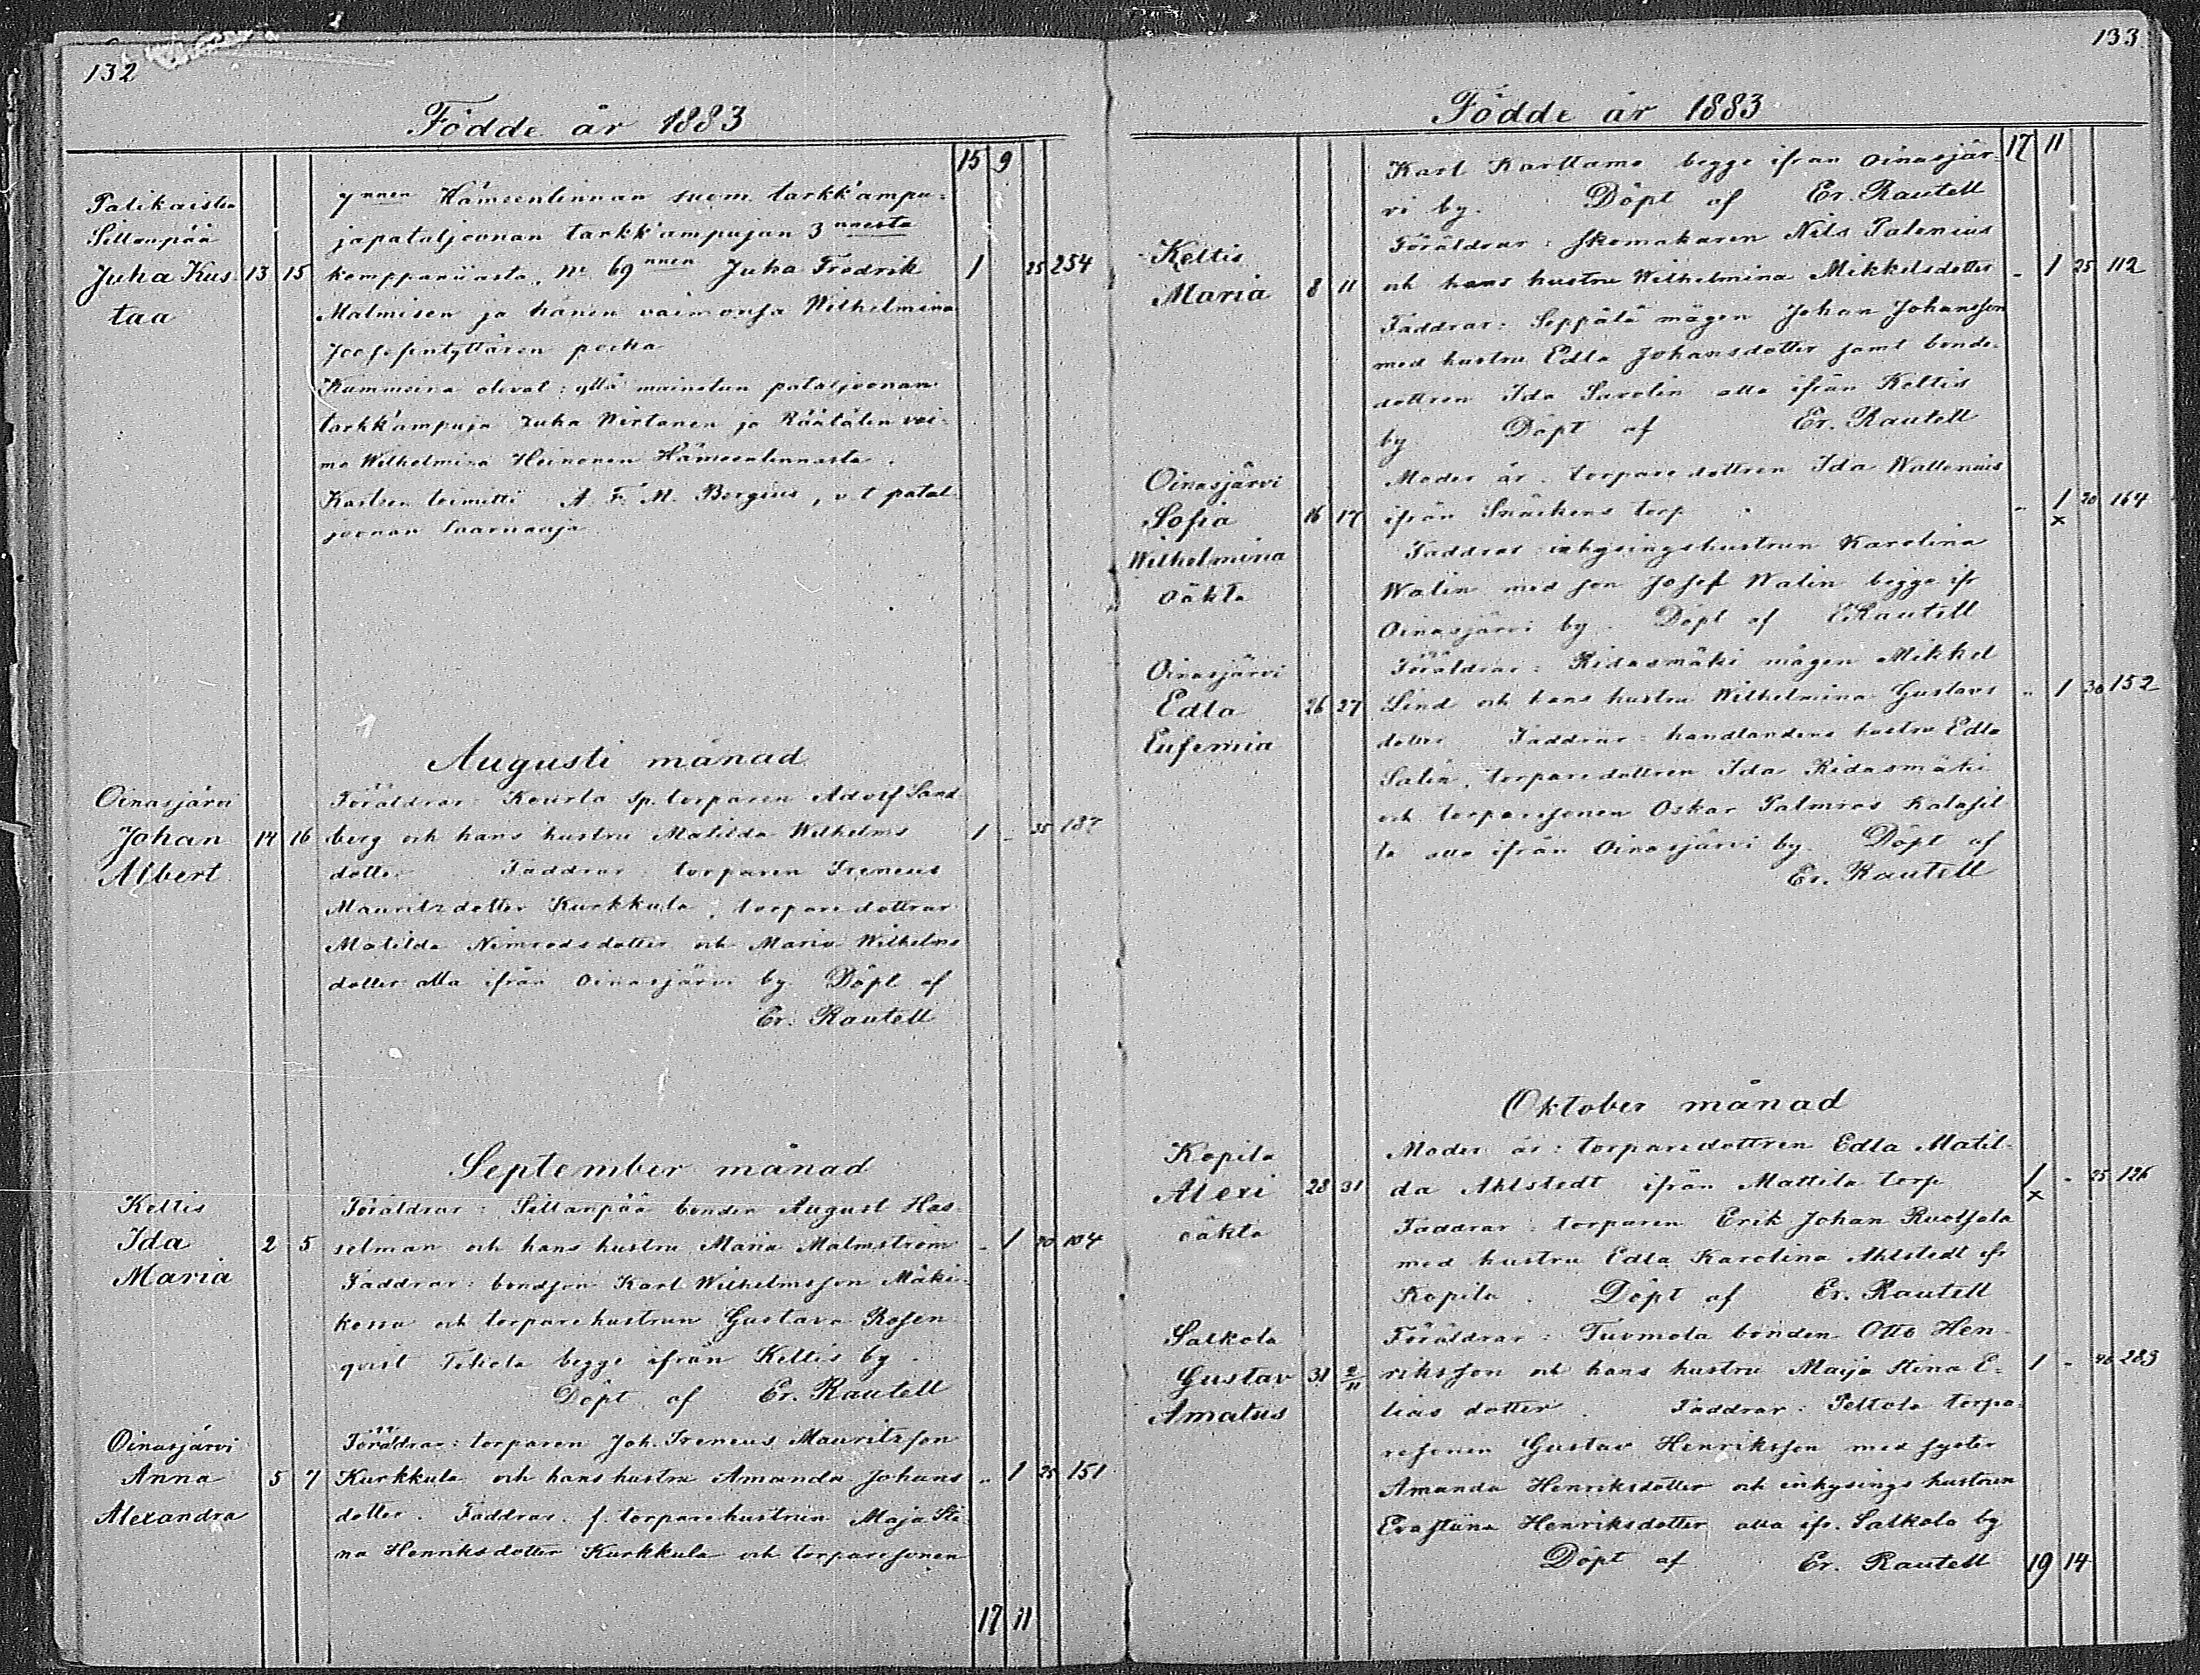 132
Födde år 1883
15 9
Patikaisten
Sillanpää
Juha Kus
taa
13 15
7nnen Hämeenlinnan suom. tarkk'ampu-
japataljoonan tarkk'ampujan 3nnesta
komppaniiasta, No 69nnen Juha Fredrik
1 25 254
Malmisen ja hänen vaimonsa Wilhelmina
Joosefintyttären poika
Kummeina olivat: yllä mainitun pataljoonan
tarkk'ampuja Juha Wirtanen ja Räätälin vai-
mo Wilhelmina Heinonen Hämeenlinnasta.
Kasteen toimitti A. F. M. Bergius, v. t. patal-
joonan Saarnaaja
Augusti månad
Oinasjärvi
Johan
Albert
14 16
Föräldrar: Kourla sp. torparen Adolf Sand
berg och hans hustru Matilda Wilhelms
1 - 35 187
dotter. Faddrar: torparen Ireneus
Mauritzdotter Kurkkula, torparedottrar
Matilda Nimrodsdotter och Maria Wilhelms
dotter alla ifrån Oinasjärvi by Döpt af
Er. Rautell
September månad
Keltis
Ida
Maria
2 5
Föräldrar: Sillanpää bonden August Has
selman och hans hustru Maria Malmström
- 1 30 104
Faddrar: bondson Karl Wilhelmsson Mäki-
kossa och torparehustrun Gustava Rosen
qvist Tikola begge ifrån Keltis by.
Döpt af Er. Rautell
Oinasjärvi
Anna
Alexandra
5 7
Föräldrar: torparen Joh. Ireneus Mauritzson
Kurkkula och hans hustru Amanda Johans
" 1 25 151
dotter. Faddrar: f. torparehustrun Maja Sti-
na Henriksdotter Kurkkula och torparesonen
17 11
133
Födde år 1883
17 11
Karl Karttamo begge ifrån Oinasjär-
vi by. Döpt af Er. Rautell
Keltis
Maria
8 11
Föräldrar: skomakaren Nils Palenius
och hans hustru Wilhelmina Mikkelsdotter
- 1 25 112
Faddrar: Seppälä mågen Johan Johansson
med hustru Edla Johansdotter samt bonde-
dottren Ida Sarolin alla ifrån Keltis
by Döpt af Er. Rautell
Oinasjärvi
Sofia
Wilhelmina
oäkta
16 17
Moder är: torparedottren Ida Wallenius
ifrån Snäckens torp
" 1 20 164
x
Faddrar: inhysingshustrun Karolina
Walin med son Josef Walin begge ifr
Oinasjärvi by. Döpt af E Rautell
Oinasjärvi
Edla
Eufemia
26 27
Föräldrar: Ridasmäki mågen Mikkel
Lind och hans hustru Wilhelmina Gustavs
" 1 30 152
dotter Faddrar: handlandens hustru Edla
Salin, torparedottren Ida Ridasmäki
och torparesonen Oskar Palmros Kalasil
ta alla ifrån Oinasjärvi by. Döpt af
Er. Rautell
Oktober månad
Kopila
Alexi
oäkta
28 31
Moder är: torparedottren Edla Matil-
da Ahlstedt ifrån Mattila torp
1 - 25 126
x
Faddrar: torparen Erik Johan Ruotsala
med hustru Edla Karolina Ahlstedt ifr
Kopila. Döpt af Er. Rautell
Salkola
Gustav
Amatus
31 2/11
Föräldrar: Tuomola bonden Otto Hen-
riksson och hans hustru Maija Stina E-
1 - 40 283
lias dotter. Faddrar: Peltola torpa-
resonen Gustav Henriksson med syster
Amanda Henriksdotter och inhysings hustrun
Evastiina Henriksdotter alla ifr. Salkola by
Döpt af Er. Rautell
19 14